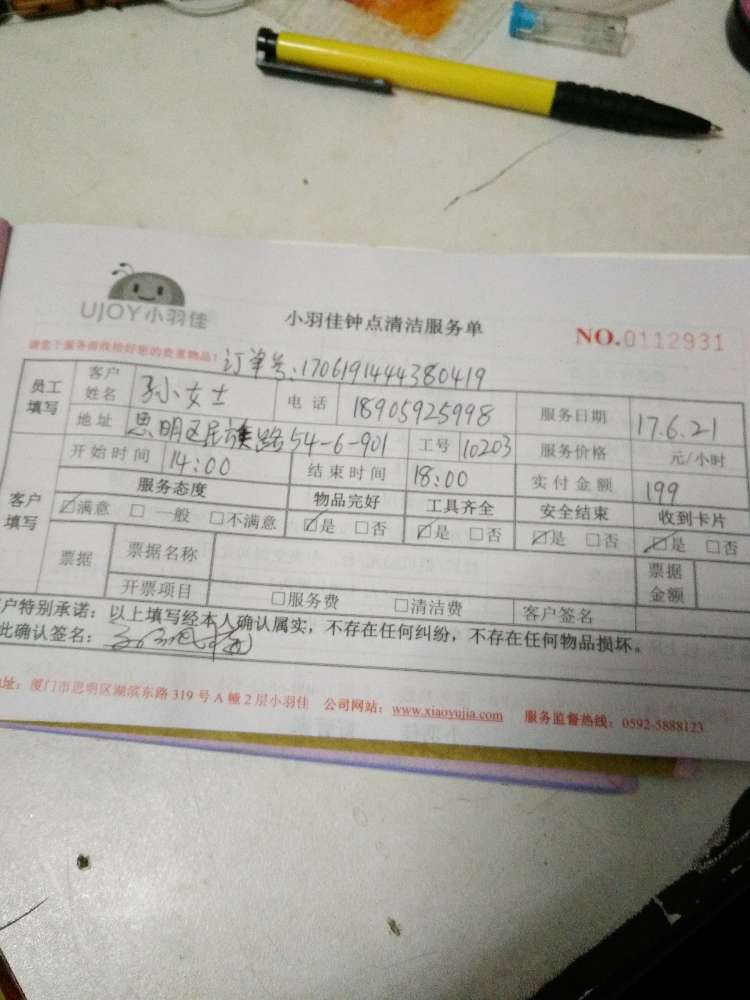 UJOY小羽佳
小羽佳钟点清洁服务单
NO.0112931
请您于服务前收拾好您的贵重物品!
订单号:1706191444380419
员工填写 客户姓名 孙小女士 电话 18905925998 服务日期 17.6.21
地址 思明区民族路54-6-901 工号 10203 服务价格 元/小时
客户填写 开始时间 14:00 结束时间 18:00 实付金额 199
服务态度 物品完好 工具齐全 安全结束 收到卡片
☑满意 □一般 □不满意 ☑是 □否 ☑是 □否 ☑是 □否 ☑是 □否
票据 票据名称 票据金额
开票项目 □服务费 □清洁费 客户签名
户特别承诺:以上填写经本人确认属实,不存在任何纠纷,不存在任何物品损坏。
此确认签名:
址:厦门市思明区湖滨东路319号A幢2层小羽佳 公司网站:www.xiaoyujia.com 服务监督热线:0592-5888123